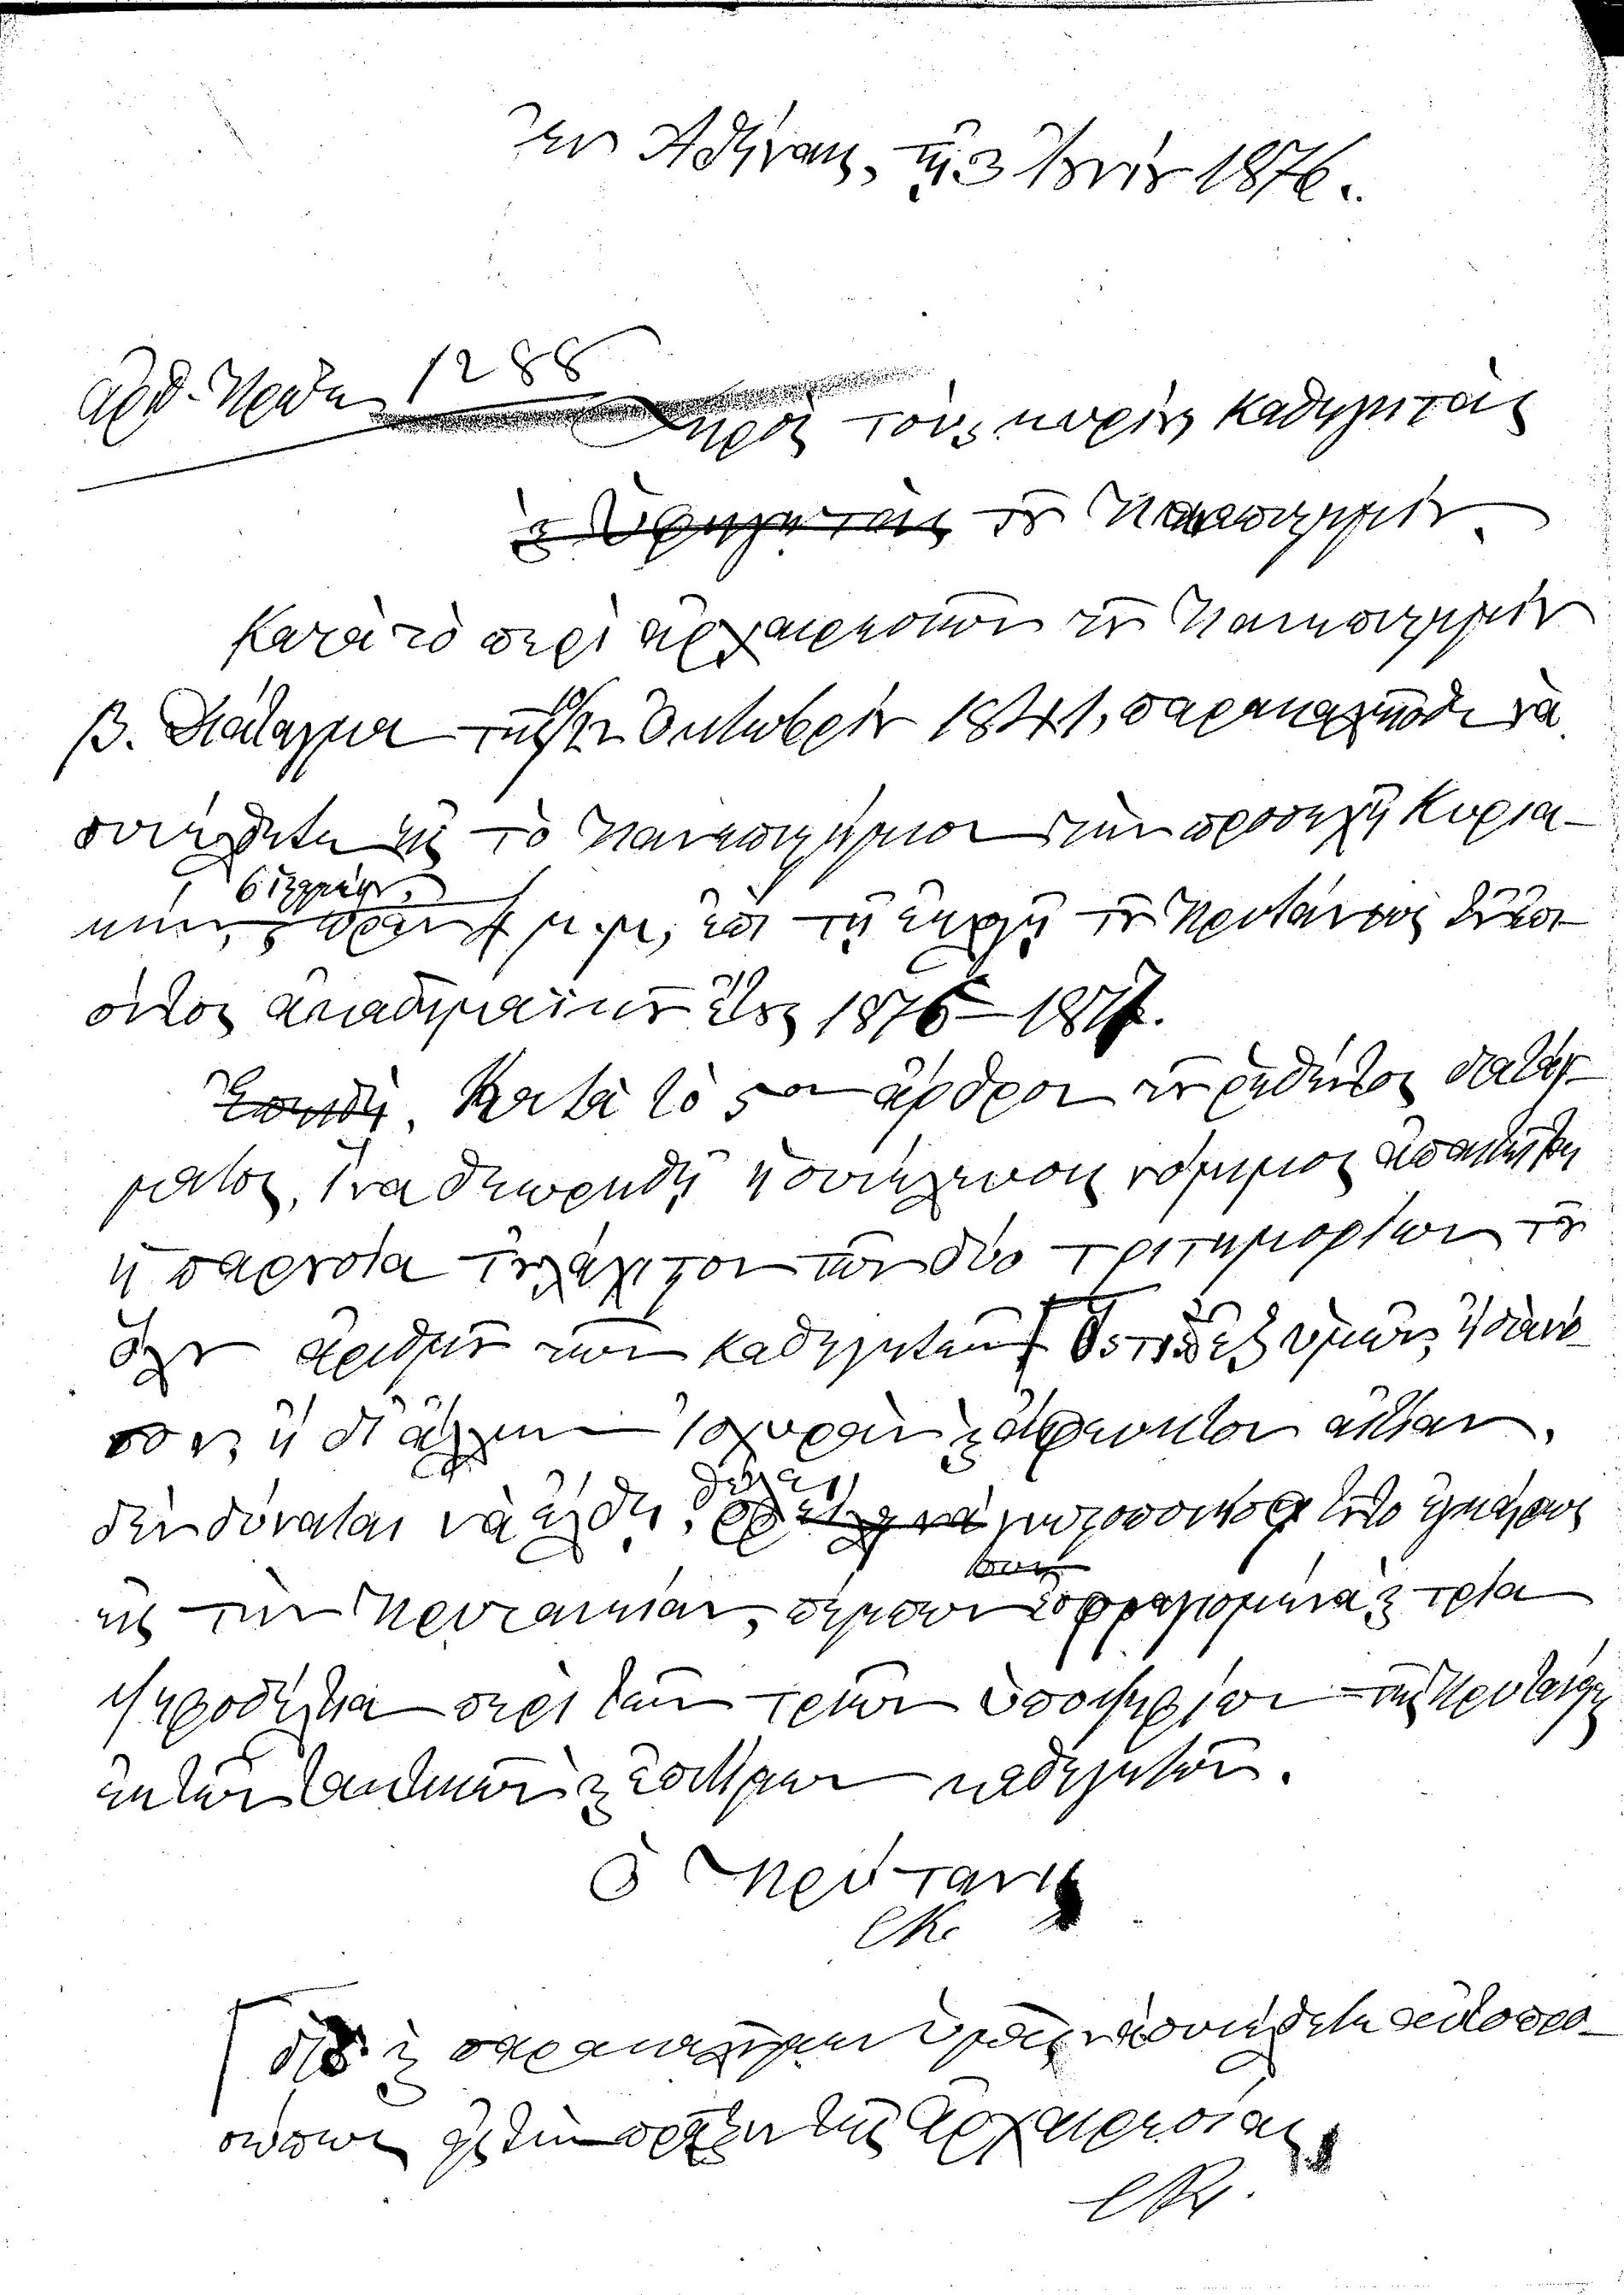 Ἐν Ἀθήναις, τῇ 3 Ἰουνίου 1876.
Ἀριθ. Πρωτ. 1288
Πρὸς τοὺς κυρίους καθηγητὰς
τοῦ Πανεπιστημίου.
Κατὰ τὸ περὶ ἀρχαιρεσιῶν τοῦ Πανεπιστημίου
β. Διάταγμα τῆς 10/22 Ὀκτωβρίου 1841, παρακαλεῖσθε νὰ
συνέλθητε εἰς τὸ Πανεπιστήμιον τὴν προσεχῆ Κυρια-
κὴν, 6 ἰσταμένου, μ.μ., ἐπὶ τῇ ἐκλογῇ τοῦ Πρυτάνεως τοῦ ἐπι-
όντος ἀκαδημαϊκοῦ ἔτους 1876–1877.
Ἐπειδὴ Κατὰ τὸ 5ον ἄρθρον τοῦ ῥηθέντος διατάγ-
ματος, ἵνα θεωρηθῇ ἡ συνέλευσις νόμιμος ἀπαιτεῖται
ἡ παρουσία τοὐλάχιστον τῶν δύο τριτημορίων τοῦ
ὅλου ἀριθμοῦ τῶν καθηγητῶν Ὅστις δὲ ἐξ ὑμῶν, ἢ διὰ νό-
σον, ἢ δι' ἄλλην ἰσχυρὰν καὶ ἄφευκτον αἰτίαν,
δὲν δύναται νὰ ἔλθῃ, θέλει γνωστοποιήσει τοῦτο ἐγκαίρως
εἰς τὴν Πρυτανείαν, πέμπων ἐσφραγισμένα καὶ τρία
ψηφοδέλτια περὶ τῶν τριῶν ὑποψηφίων τῆς Πρυτανείας
ἐκ τῶν τακτικῶν καὶ ἐπιτίμων καθηγητῶν.
Ὁ Πρύτανις
διὸ καὶ παρακαλοῦμεν ὑμᾶς νὰ συνέλθητε αὐτοπρο-
σώπως εἰς τὴν πρᾶξιν τῆς ἀρχαιρεσίας